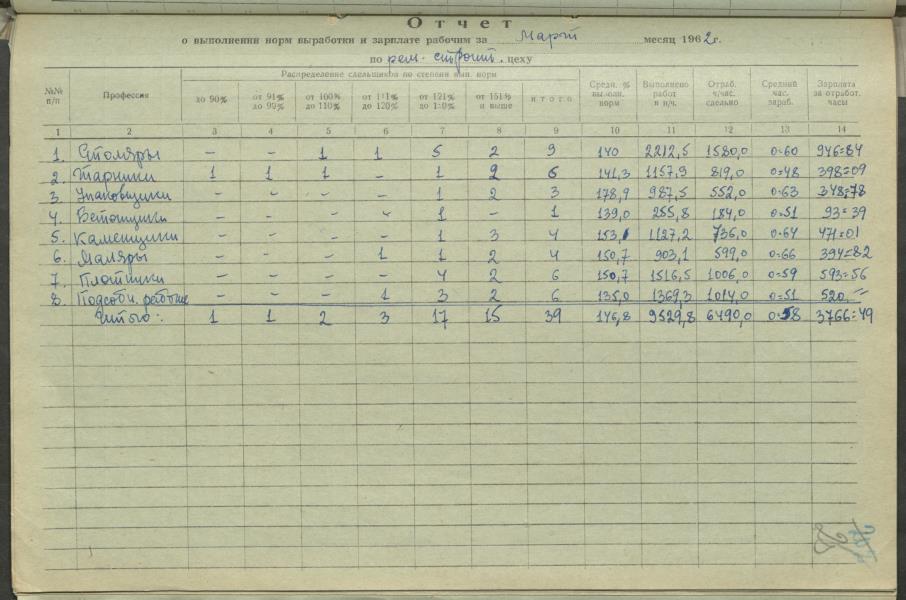 Отчет
о выполнении норм выработки и зарплате рабочим за Март месяц 1962 г.
по рем. строит. цеху
№№ п/п | Профессия | Распределение сдельщиков по степени вып. норм | Средн. % выполн. норм | Выполнено работ в н/ч. | Отраб. ч/час. сдельно | Средний час. зараб. | Зарплата за отработ. часы
до 90% | от 91% до 99% | от 100% до 110% | от 111% до 120% | от 121% до 150% | от 151% и выше | итого
1 | 2 | 3 | 4 | 5 | 6 | 7 | 8 | 9 | 10 | 11 | 12 | 13 | 14
1. Столяры | – | – | 1 | 1 | 5 | 2 | 9 | 140 | 2212,5 | 1580,0 | 0=60 | 946=84
2. Тарники | 1 | 1 | 1 | – | 1 | 2 | 6 | 141,3 | 1157,9 | 819,0 | 0=48 | 398=09
3. Упаковщики | – | – | – | – | 1 | 2 | 3 | 178,9 | 987,5 | 552,0 | 0=63 | 348=78
4. Бетонщики | – | – | – | – | 1 | – | 1 | 139,0 | 255,8 | 184,0 | 0=51 | 93=39
5. Каменщики | – | – | – | – | 1 | 3 | 4 | 153,1 | 1127,2 | 736,0 | 0=64 | 471=01
6. Маляры | – | – | – | 1 | 1 | 2 | 4 | 150,7 | 903,1 | 599,0 | 0=66 | 394=82
7. Плотники | – | – | – | – | 4 | 2 | 6 | 150,7 | 1516,5 | 1006,0 | 0=59 | 593=56
8. Подсобн. рабочие | – | – | – | 1 | 3 | 2 | 6 | 135,0 | 1369,3 | 1014,0 | 0=51 | 520,=
Итого: | 1 | 1 | 2 | 3 | 17 | 15 | 39 | 146,8 | 9529,8 | 6490,0 | 0=58 | 3766=49